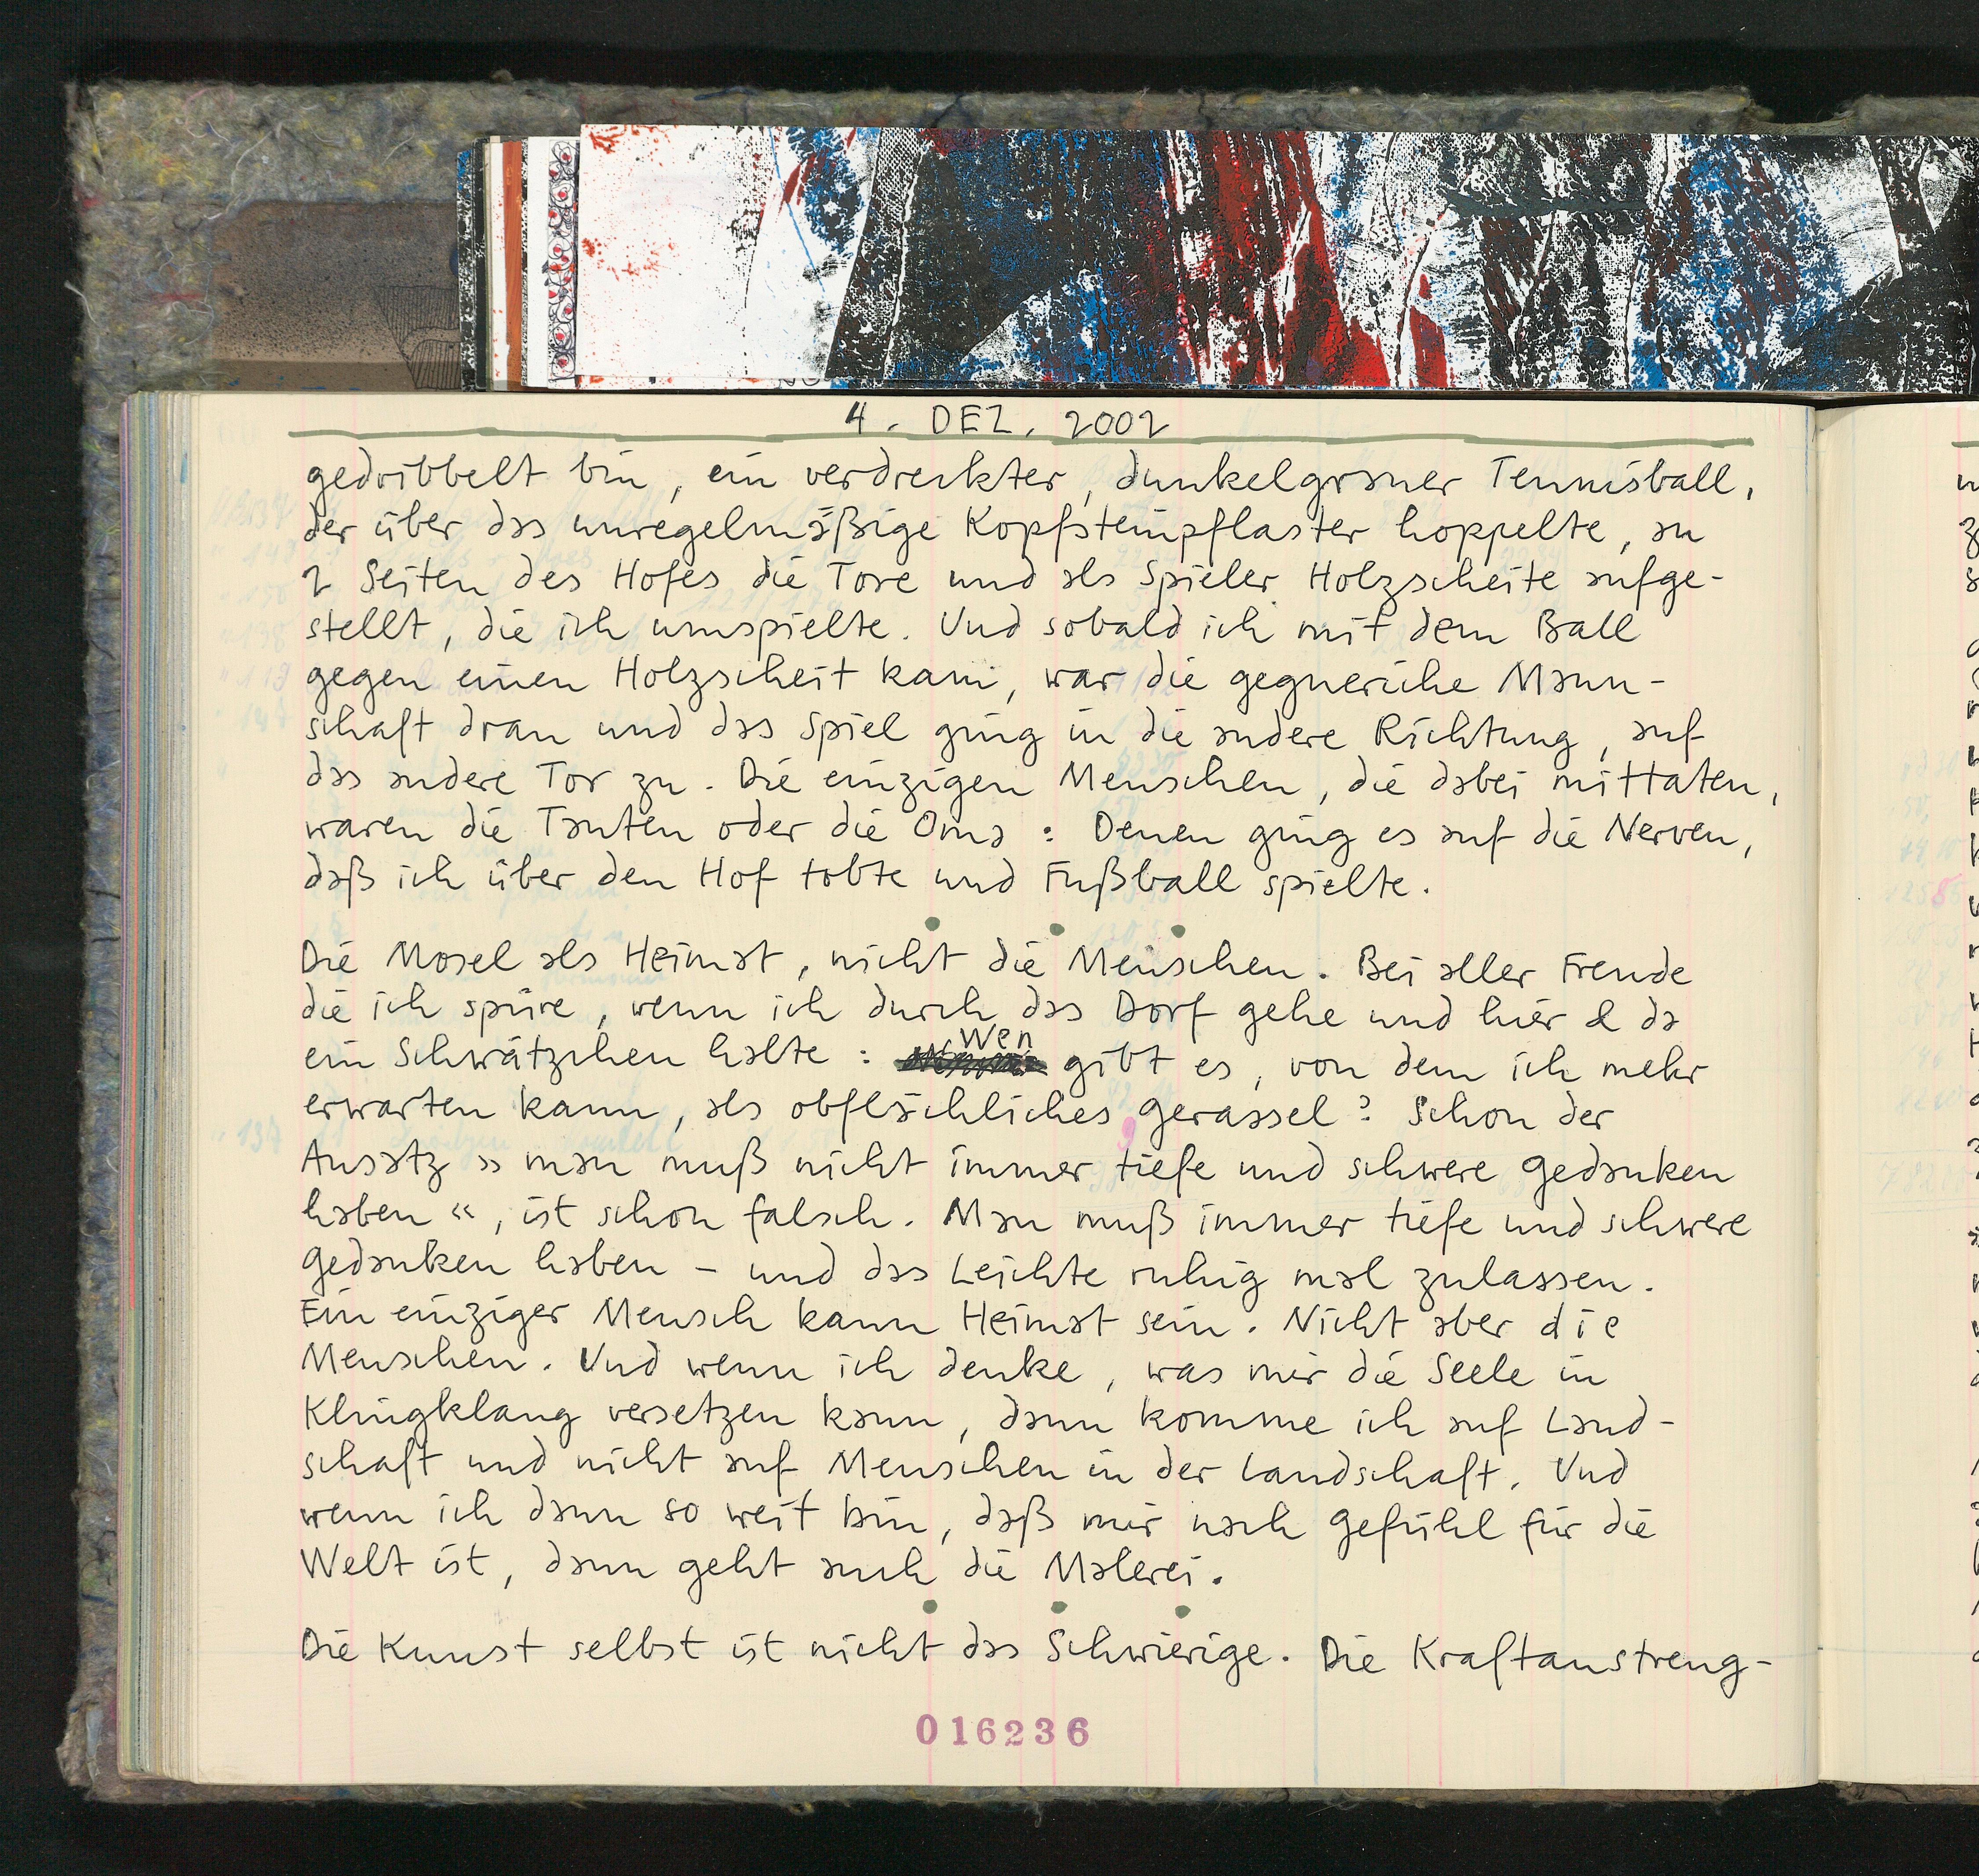 4. DEZ. 2002
gedribbelt bin, ein verdreckter, dunkelgrauer Tennisball,
der über das unregelmäßige Kopfsteinpflaster hoppelte, an
2 Seiten des Hofes die Tore und als Spieler Holzscheite aufge-
stellt, die ich umspielte. Und sobald ich mit dem Ball
gegen einen Holzscheit kam, war die gegnerische Mann-
schaft dran und das Spiel ging in die andere Richtung, auf
das andere Tor zu. Die einzigen Menschen, die dabei mittaten,
waren die Tanten oder die Oma: Denen ging es auf die Nerven,
daß ich über den Hof tobte und Fußball spielte.
Die Mosel als Heimat, nicht die Menschen. Bei aller Freude
die ich spüre, wenn ich durch das Dorf gehe und hier & da
ein Schwätzchen halte: Wen gibt es, von dem ich mehr
erwarten kann, als obflächliches Gerassel? Schon der
Ansatz »man muß nicht immer tiefe und schwere Gedanken
haben«, ist schon falsch. Man muß immer tiefe und schwere
Gedanken haben – und das Leichte ruhig mal zulassen.
Ein einziger Mensch kann Heimat sein. Nicht aber die
Menschen. Und wenn ich denke, was mir die Seele in
Klingklang versetzen kann, dann komme ich auf Land-
schaft und nicht auf Menschen in der Landschaft. Und
wenn ich dann so weit bin, daß mir nach Gefühl für die
Welt ist, dann geht auch die Malerei.
Die Kunst selbst ist nicht das Schwierige. Die Kraftanstreng-
016236